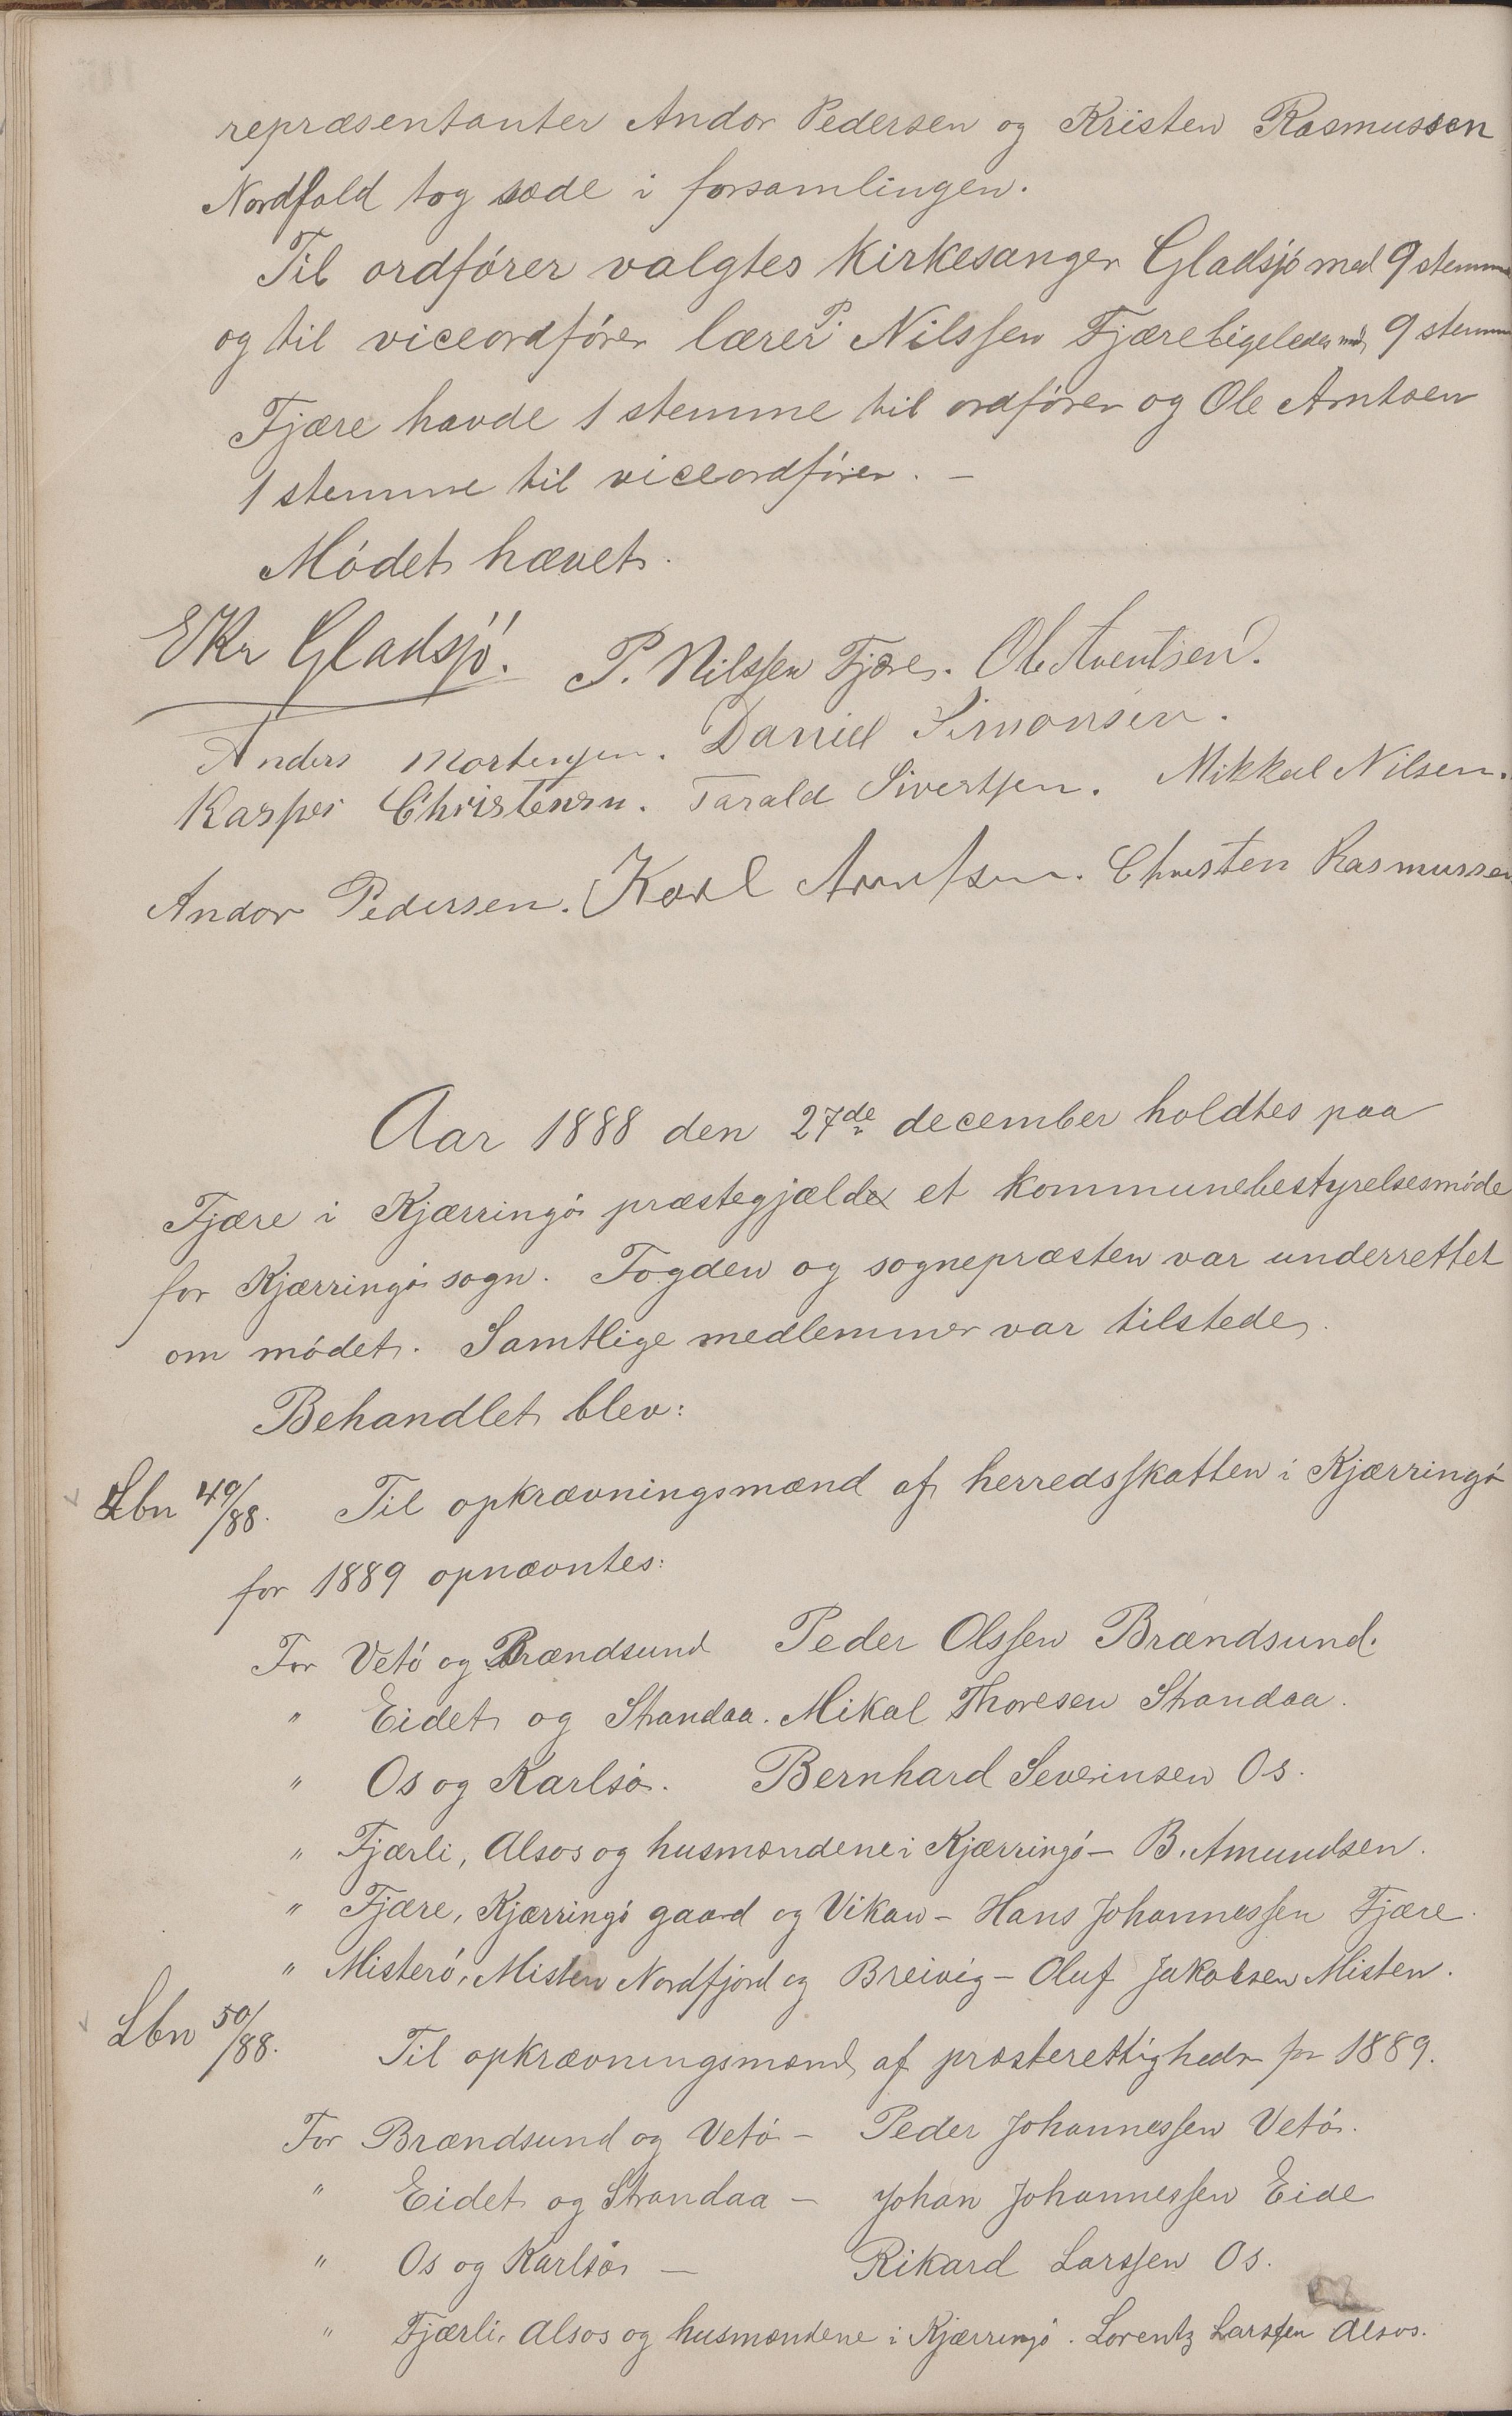 repræsentanter Andor Pedersen og Kristen Rasmussen
Nordfold tog sæde i forsamlingen.
Til ordfører valgtes Kirkesanger Gladsjø med 9 stemme
og til viceordfører lærer P. Nilssen Fjære ligeledes med 9 stemme
Fjære havde 1 stemme til ordfører og Ole Arntsen
1 stemme til viceordfører. –
Mødet hævet.
EKr Gladsjø. P. Nilssen Fjære. Ole Arentsen.
Anders Mortensen. Daniel Simonsen.
Kasper Christensen. Tarald Sivertsen. Mikkal Nilsen.
Andor Pedersen. Karl Arntsen. Christen Rasmussen
Aar 1888 den 27de december holdtes paa
Fjære i Kjærringø præstegjæld et kommunebestyrelsesmøde
for Kjærringø sogn. Fogden og sognepræsten var underrettet
om mødet. Samtlige medlemmer var tilstede.
Behandlet blev:
Lbn 49/88. Til opkrævningsmænd af herredsskatten i Kjærringø
for 1889 opnævntes:
For Vetø og Brændsund Peder Olssen Brændsund.
" Eidet og Strandaa. Mikal Thoresen Strandaa.
" Os og Karlsø. Bernhard Severinsen Os.
" Fjærli, Alsos og husmændene i Kjærringø – B. Amundsen.
" Fjære, Kjærringø gaard og Vikan – Hans Johannessen Fjære.
" Misterø, Misten Nordfjord og Breivig – Oluf Jakobsen Misten.
Lbn 50/88. Til opkrævningsmænd af præsterettigheder for 1889.
For Brændsund og Vetø – Peder Johannessen Vetø.
" Eidet og Strandaa – Johan Johannessen Eide
" Os og Karlsø – Rikard Larssen Os.
" Fjærli, Alsos og husmændene i Kjærringø. Lorentz Larssen Alsos.